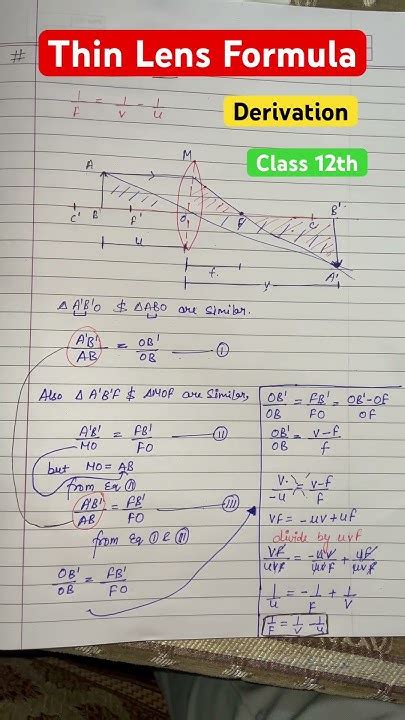 Thin Lens Formula
#
1/F = 1/v - 1/u
Derivation
Class 12th
M
A
C' B F' O F C B'
u
f
v
A'
Δ A'B'O $ ΔABO are similar.
A'B'/AB = OB'/OB —— I
Also Δ A'B'F $ ΔMOF are Similar,
A'B'/MO = FB'/FO —— II
but MO = AB
from Eq II
A'B'/AB = FB'/FO —— III
from Eq I & III
OB'/OB = FB'/FO
OB'/OB = FB'/FO = OB'-OF/OF
OB'/OB = v-f/f
v/-u = v-f/f
vf = -uv + uf
divide by uvf
vf/uvf = -uv/uvf + uf/uvf
1/u = -1/F + 1/v
1/F = 1/v - 1/u